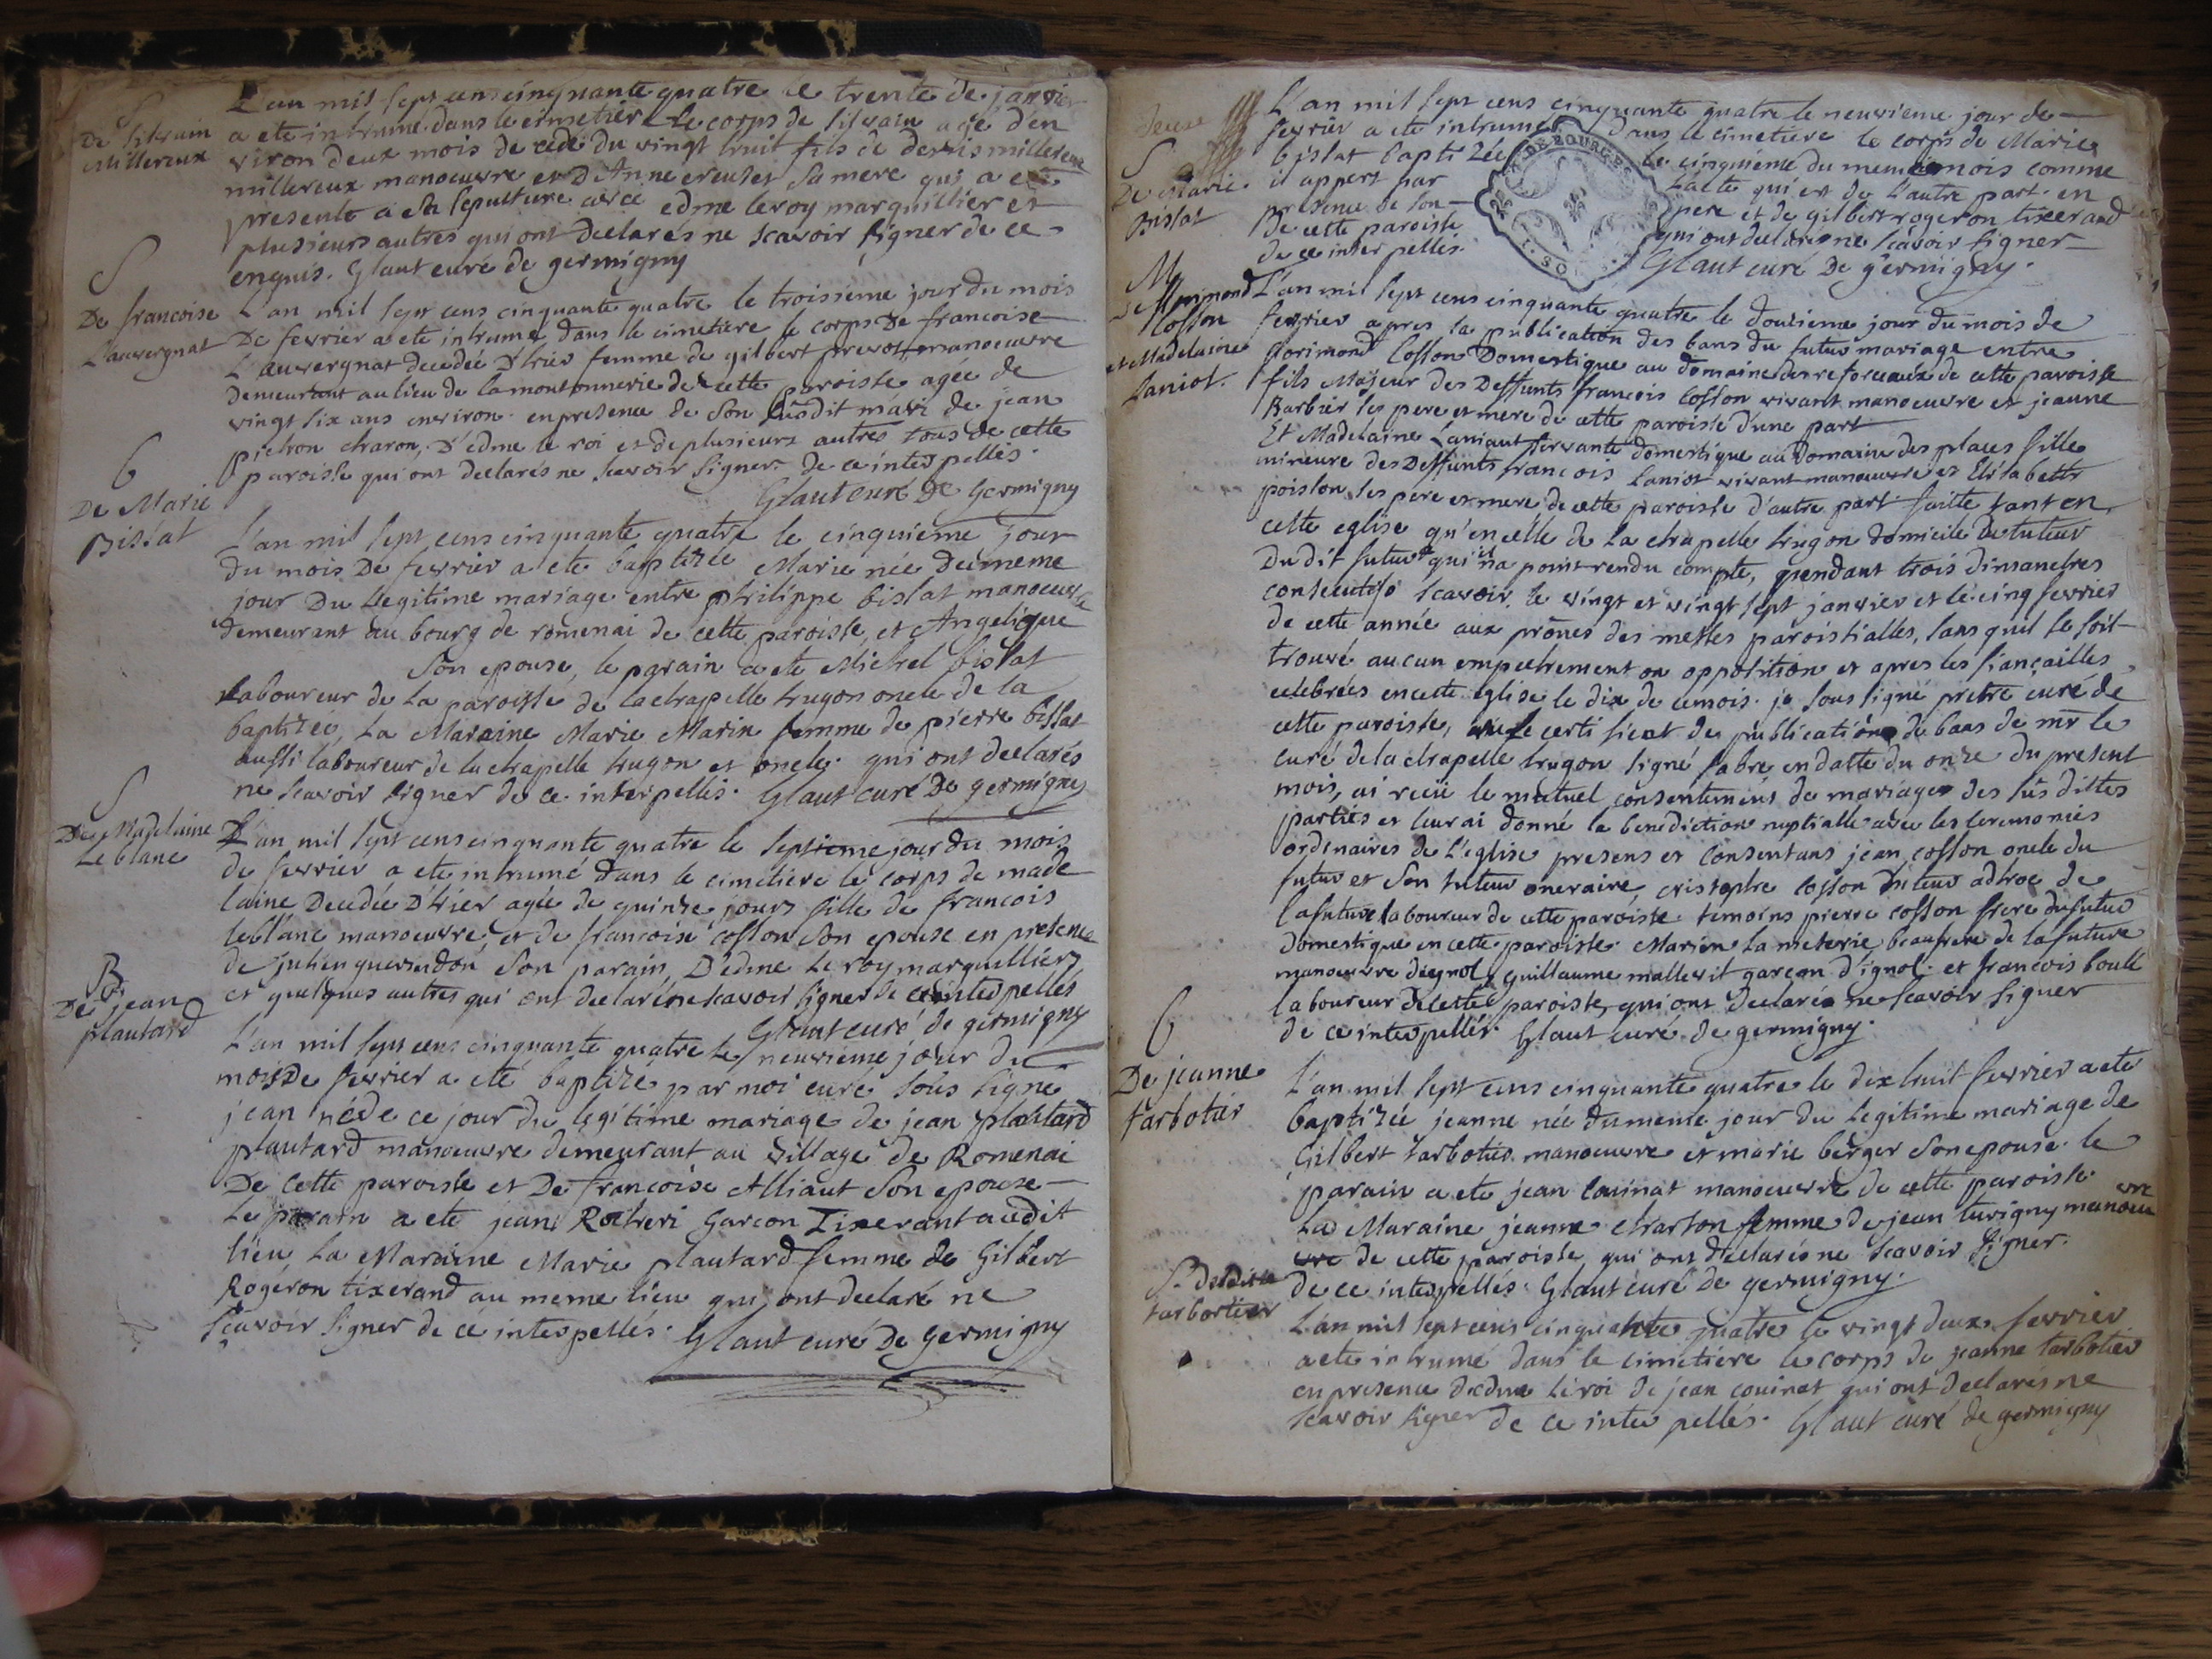 L'an mil sept cens cinquante quatre le trente de janvier
S
De Silvain
Millereux
a ete inhumé dans le cimetier le corps de silvain agé d'en
viron deux mois decedé du vingt huit fils de denis millereux
millereux manoeuvre et D'Anne creuzet sa mere qui a eté
presente a sa sepulture avec edme leroy marguillier et
plusieurs autres qui ont declarés ne scavoir signer de ce
enquis. Glaut curé de germigny
S
De francoise
Lauvergnat
L'an mil sept cens cinquante quatre le troisieme jour du mois
De fevrier a ete inhumé dans le cimetiere le corps De francoise
L'auvergnat decedée D'hier femme de gilbert prevost manoeuvre
demeurant au lieu de la moutonnerie de cette paroisse agée de
vingt six ans environ en presence de son susdit mari de jean
pichon charon, D'edme le roi et de plusieurs autres tous de cette
paroisse qui ont declarés ne scavoir signer de ce interpellés.
Glaut curé De Germigny
b
De Marie
Bislat
L'an mil sept cens cinquante quatre le cinquieme jour
du mois De fevrier a ete baptizée Marie née du meme
jour Du Legitime mariage entre philippe bislat manoeuvre
demeurant au bourg de romenai de cette paroisse, et Angelique
Son epouse, le parain a ete Michel bislat
laboureur de la paroisse de la chapelle hugon oncle de la
baptizée, La Maraine Marie Marin femme de pierre bislat
aussi laboureur de la chapelle hugon et oncle qui ont declarés
ne scavoir signer de ce interpellés. Glaut curé De germigny
S
De Madelaine
Le blanc
L'an mil sept cens cinquante quatre le septieme jour du mois
de fevrier a ete inhumé dans le cimetiere le corps de made
laine Decedée D'hier agée de quinze jours fille de francois
leblanc manoeuvre, et de francoise cosson son epouse en presence
de julien guerindon son parain, D'edme le roy marguilliers
et quelques autres qui ont declaré ne scavoir signer de ce interpellés
Glaut curé de germigny
B
De jean
plautard
L'an mil sept cens cinquante quatre le neuvieme jour du
mois De fevrier a eté baptizé par moi curé sous signé
jean né de ce jour du legitime mariage de jean plautard
plautard manoeuvre demeurant au village de Romenai
De cette paroisse et De francoise Alliaut son epouse
Le parain a ete jean Rocheri Garcon Tixerant audit
lieu La Maraine Marie plautard femme de Gilbert
Rogeron tixerand au meme lieu qui ont declaré ne
scavoir signer de ce interpellés. Glaut curé De Germigny
L'an mil sept cens cinquante quatre le neuvieme jour de
S
De Marie
Bislat
fevrier a ete inhumé dans le cimetiere le corps de Marie
bislat baptizée le cinquieme du meme mois comme
il appert par l'acte qui est de L'autre part en
presence de son pere et de gilbert rogeron tixerand
De cette paroisse qui ont declarés ne scavoir signer
de ce interpellés. Glaut curé De germigny.
DE BOURGES
M
De florimond
Cosson
et Madelaine
Laniot.
L'an mil sept cens cinquante quatre le douzieme jour du mois de
fevrier apres la publication des bans du futur mariage entre
florimond Cosson Domestique au domaine des reforceaux de cette paroisse
fils Majeur des Deffunts francois Cosson vivant manoeuvre et jeanne
Barbier ses pere et mere de cette paroisse d'une part
Et Madelaine Laniaut servante domestique au Domaine des places fille
mineure des Deffunts francois Laniot vivant manoeuvre et Elisabette
poisson ses pere et mere de cette paroisse d'autre part faitte tant en
cette eglise qu'en celle de la chapelle hugon domicile du tuteur
Dudit futur qui n'a point rendu compte, pendant trois dimanches
consecutifs scavoir le vingt et vingt sept janvier et le cinq fevrier
de cette année aux prônes des messes paroissialles, sans quil se soit
trouvé aucun empechement ou opposition et apres les fiançailles
celebrées en cette eglise le dix de ce mois. je sous signé pretre curé de
cette paroisse, vu le certificat des publications de bans de mr le
curé de la chapelle hugon signé fabre en datte du onze du present
mois, ai recu le mutuel consentement de mariage des sus dittes
parties et leur ai donné la benediction nuptialle avec les ceremonies
ordinaires de L'eglise presens et consentans jean cosson oncle du
futur et son tuteur oneraire, cristophe cosson tuteur adhoc de
la future laboureur de cette paroisse. temoins pierre cosson frere du futur
domestique en cette paroisse Marien la meterie beaufrere de la future
manoeuvre d'ignol, guillaume mallevit garcon d'ignol et francois boulé
laboureur de cette paroisse, qui ont declarés ne scavoir signer
de ce interpellés. Glaut curé de germigny.
b
De jeanne
tarbotier
L'an mil sept cens cinquante quatre le dix huit fevrier a ete
baptizée jeanne née du meme jour du Legitime mariage de
Gilbert tarbotier manoeuvre et marie berger son epouse. le
parain a ete jean couinat manoeuvre de cette paroisse
La Maraine jeanne charton femme de jean turigny manoeu
vre de cette paroisse qui ont declarés ne scavoir signer.
de ce interpellés. Glaut curé de germigny.
S. De ditte
tarbortier
L'an mil sept cens cinquante quatre le vingt deux fevrier
a ete inhumé dans le cimetiere le corps de jeanne tarbotier
en presence d'edme leroi de jean couinat qui ont declarés ne
scavoir signer de ce interpellés. Glaut curé de germigny